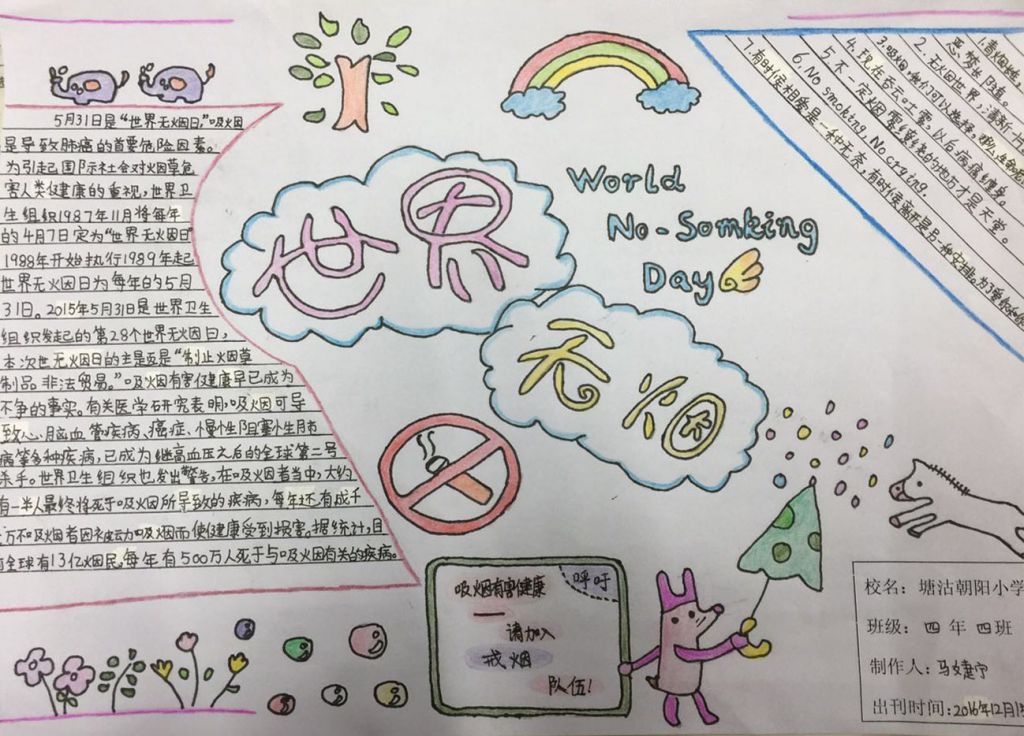 5月31日是“世界无烟日”,吸烟
是导致肺癌的首要危险因素。
为引起国际社会对烟草危
害人类健康的重视,世界卫
生组织1987年11月将每年
的4月7日定为“世界无烟日”
1988年开始执行1989年起
世界无烟日为每年的5月
31日。2015年5月31日是世界卫生
组织发起的第28个世界无烟日,
本次世无烟日的主是页是“制止烟草
制品非法贸易。”吸烟有害健康早已成为
不争的事实。有关医学研究表明,吸烟可导
致心脑血管疾病、癌症、慢性阻塞性肺
病等多种疾病,已成为继高血压之后的全球第二号
杀手。世界卫生组织也发出警告,在吸烟者当中,大约
有一半人最终将死于吸烟所导致的疾病,每年还有成千
万不吸烟者因被动吸烟而使健康受到损害。据统计,目
前全球有13亿烟民,每年有500万人死于与吸烟有关的疾病。
世界
无烟
World
No-Somking
Day
2.无烟世界,清新一片
3.吸烟,我们可以选择
4.现在吞云吐雾,以后病痛缠身。
5.不一定烟雾缭绕的地方才是天堂。
6.No smoking.No crying.
7.有时候相爱是一种无奈,有时候离开是另一种安排。为了
吸烟有害健康
呼吁
请加入
戒烟
队伍!
校名:塘沽朝阳小学
班级:四年四班
制作人:马婕宁
出刊时间:2016年12月1